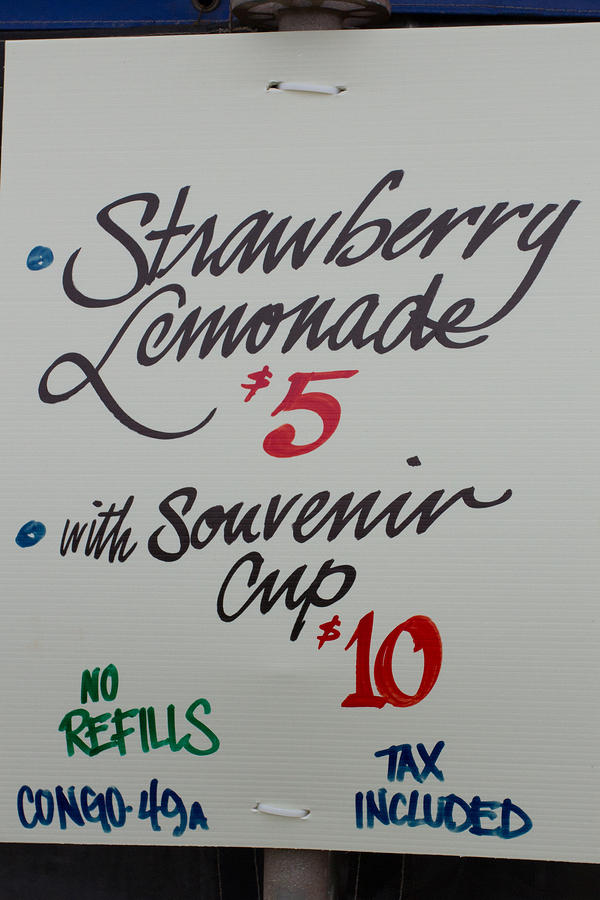 • Strawberry
Lemonade
$5
• with Souvenir
Cup
$10
NO
REFILLS
CONGO-49A
TAX
INCLUDED